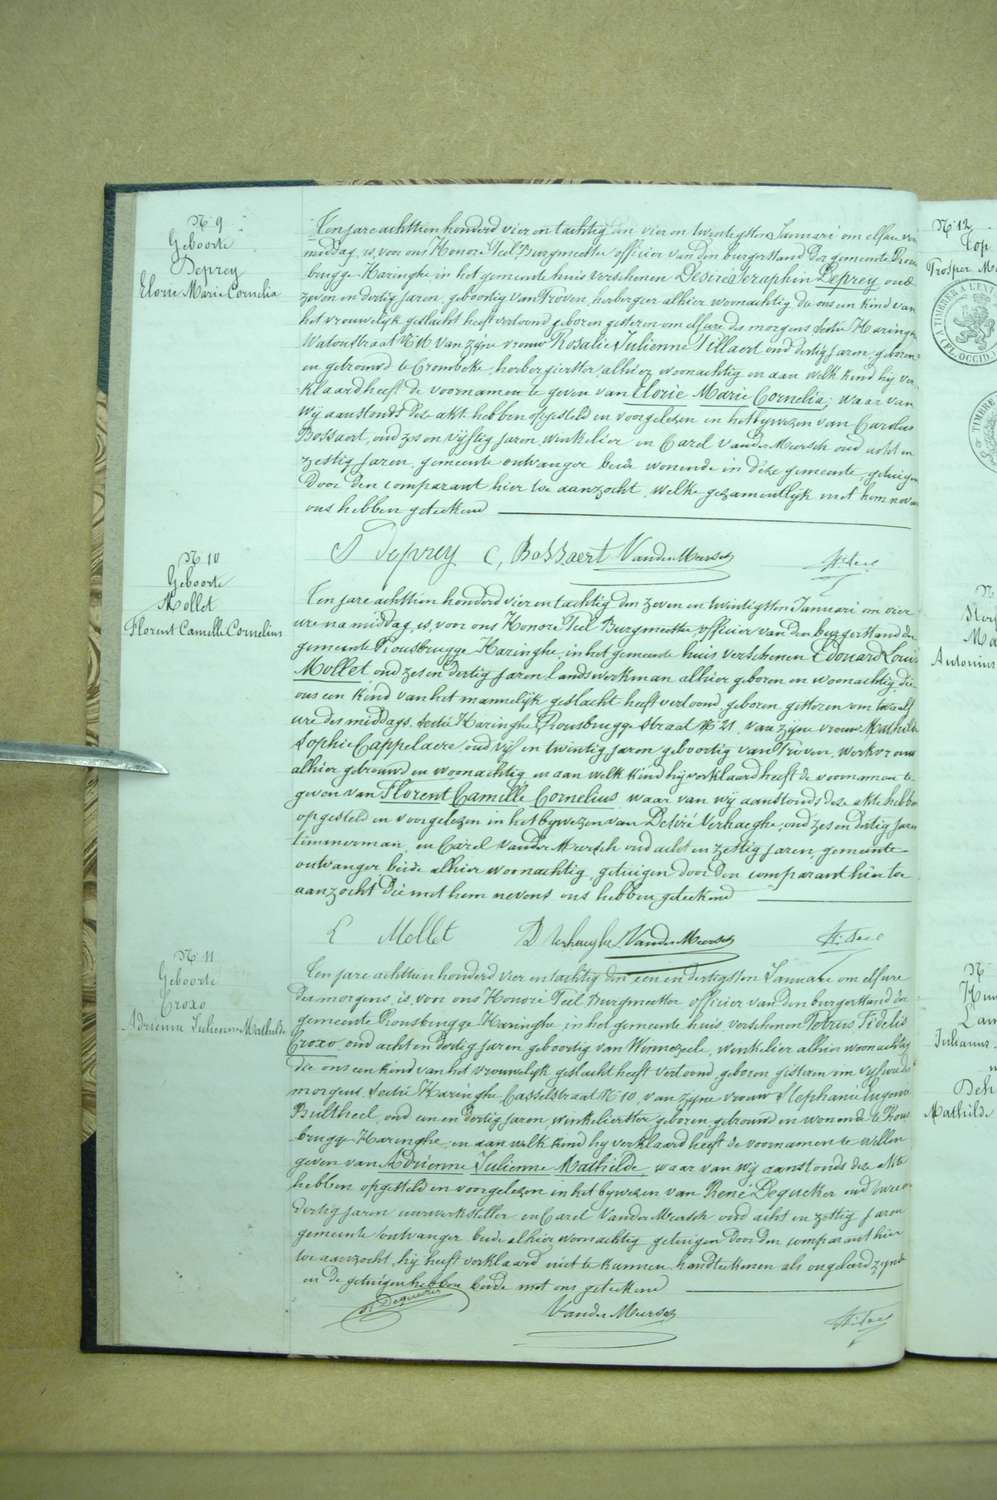 N. 9
Geboorte
Deprey
Elorie Marie Cornelia
Ten jare achttien honderd vier en tachtig den vier en twintigsten Januari om elf ure voor
middag, is, voor ons Honoré Teel Burgmeester officier van den burgerstand der gemeente Rous
brugge-Haringhe, in het gemeente huis verschenen Désiré Seraphin Deprey, oud
zeven en dertig jaren, geboortig van Proven, herbergier alhier woonachtig, die ons een kind van
het vrouwelijk geslacht heeft vertoond, geboren gisteren om elf ure des morgens Sectie Haringhe
Watoustraat N. 16 van zijne vrouw Rosalie Julienne Tillaert oud dertig jaren, geboren
en getrouwd te Crombeke, herbergierster, alhier woonachtig en aan welk kind hij ver
klaard heeft de voornamen te geven van Elorie Marie Cornelia; waar van
wij aanstonds deze akt hebben opgesteld en voorgelezen in het bijwezen van Carolus
Bossaert, oud zes en vijftig jaren, winkelier en Carel VanderMeersch oud acht en
zestig jaren, gemeente ontvanger beide wonende in deze gemeente, getuigen
door den comparant hier toe aanzocht, welke gezamentlijk met hem nevens
ons hebben geteekend
D Deprey C, Bossaert VanderMeersch H. Teel
N. 10
Geboorte
Mollet
Florent Camille Cornelius
Ten jare achttien honderd vier en tachtig den zeven en twintigsten Januari om vier
ure namiddag, is, voor ons Honoré Teel Burgmeester officier van den burgerstand der
gemeente Rousbrugge Haringhe, in het gemeente huis verschenen Edouard Louis
Mollet oud zes en dertig jaren landswerkman alhier geboren en woonachtig, die
ons een kind van het mannelijk geslacht heeft vertoond, geboren gisteren om twaalf
ure des middags, Sectie Haringhe Rousbrugge Straat N. 21, van zijne vrouw Mathilde
Sophie Cappelaere, oud vijf en twintig jaren geboortig van Proven, werkvrouw
alhier getrouwd en woonachtig en aan welk kind hij verklaard heeft de voornamen te
geven van Florent Camille Cornelius, waar van wij aanstonds deze akte hebben
opgesteld en voorgelezen in het bijwezen van Désiré Verhaeghe, oud zes en dertig jaren
timmerman, en Carel VanderMeersch oud acht en zestig jaren, gemeente
ontvanger beide alhier woonachtig, getuigen door den comparant hier toe
aanzocht die met hem nevens ons hebben geteekend
E Mollet D Verhaeghe VanderMeersch H. Teel
N. 11
Geboorte
Croxo
Adrienne Julienne Mathilde
Ten jare achttien honderd vier en tachtig den een en dertigsten Januari om elf ure
des morgens, is, voor ons Honoré Teel Burgmeester officier van den burgerstand der
gemeente Rousbrugge Haringhe, in het gemeente huis verschenen Petrus Fidelis
Croxo, oud acht en dertig jaren geboortig van Winnezeele, winkelier alhier woonachtig
die ons een kind van het vrouwelijk geslacht heeft vertoond, geboren gisteren om vijf ure des
morgens, Sectie Haringhe Casselstraat N. 10, van zijne vrouw Stephanie Eugenie
Bultheel, oud een en dertig jaren, winkelierster geboren, getrouwd en wonende te Rous
brugge Haringhe, en aan welk kind hij verklaard heeft de voornamen te willen
geven van Adrienne Julienne Mathilde, waar van wij aanstonds deze akte
hebben opgesteld en voorgelezen in het bijwezen van René Dequeker oud twee en
dertig jaren uurwerksteller en Carel VanderMeersch oud acht en zestig jaren
gemeente ontvanger beide alhier woonachtig getuigen door den comparant hier
toe aanzocht, hij heeft verklaard niet te kunnen handteekenen als ongeleerd zynde
en de getuigen hebben beide met ons geteekend
R Dequeker VanderMeersch H. Teel
N. 12
Top
Prosper Ma
Antonius
Julianus
Mathilde